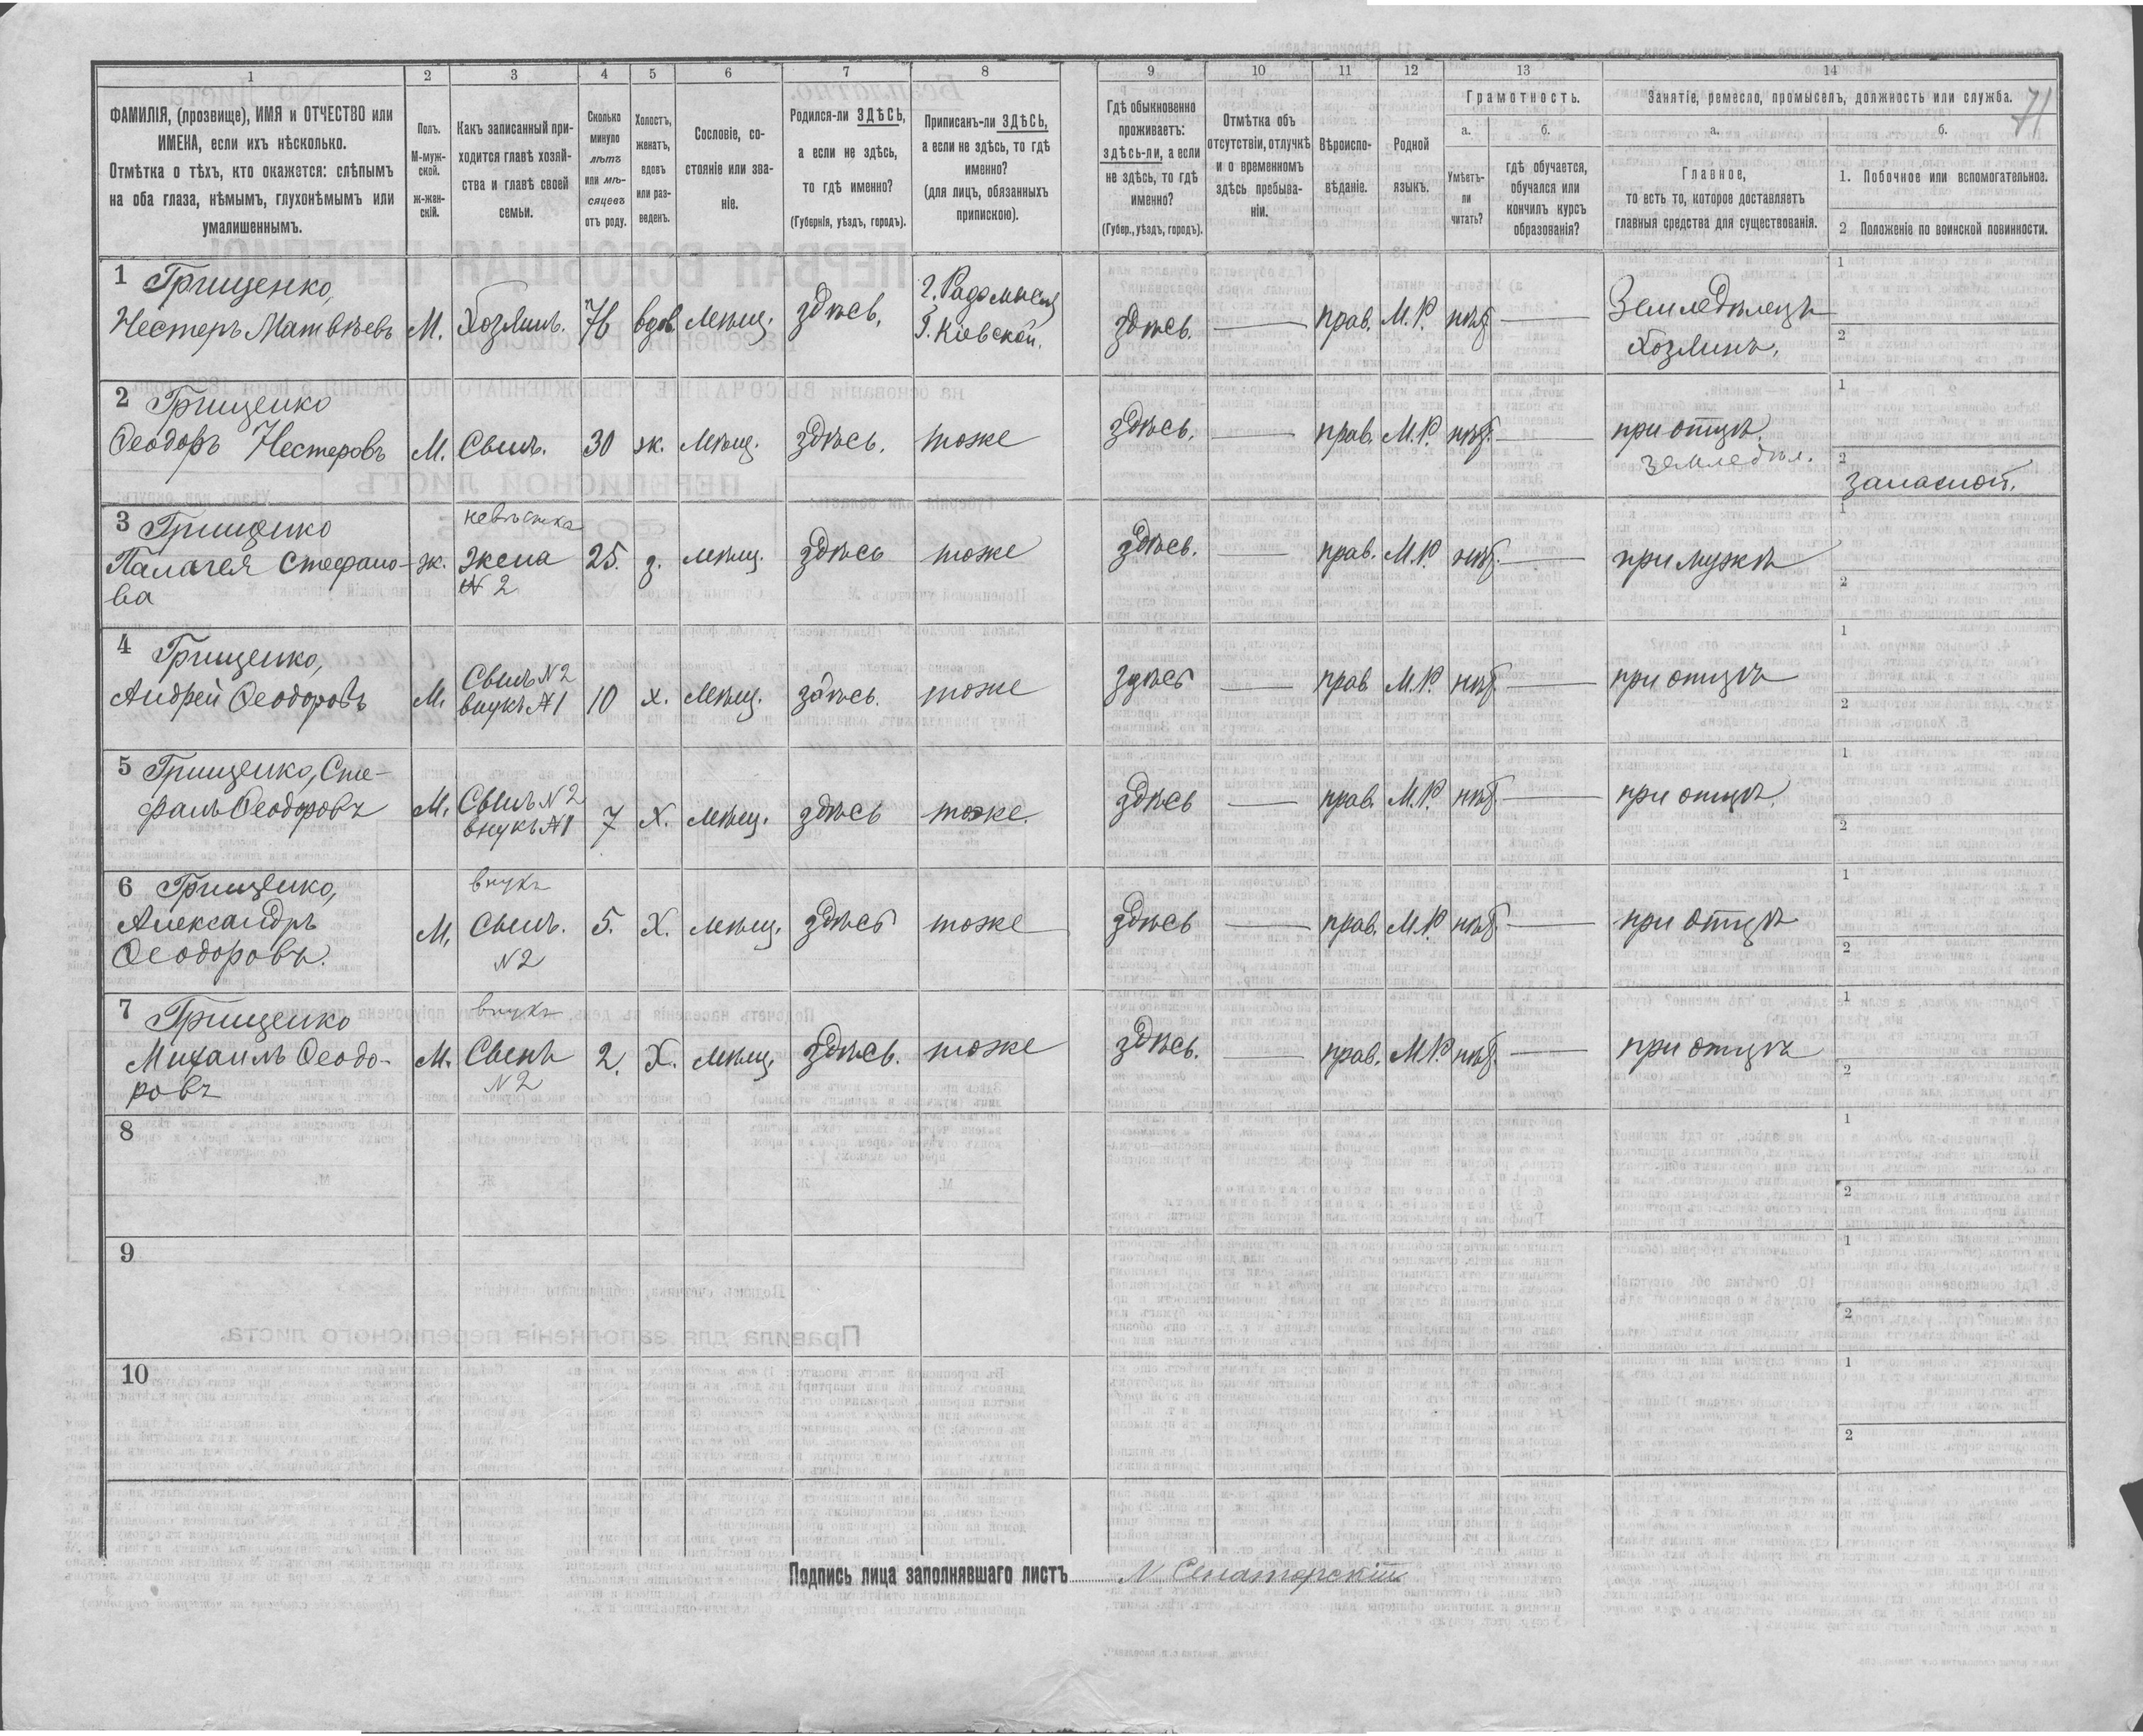 71
1 2 3 4 5 6 7 8 9 10 11 12 13 14
ФАМИЛІЯ, (прозвище), ИМЯ и ОТЧЕСТВО или
ИМЕНА, если ихъ нѣсколько.
Отмѣтка о тѣхъ, кто окажется: слѣпымъ
на оба глаза, нѣмымъ, глухонѣмымъ или
умалишеннымъ.
Полъ.
М-муж-
ской.
ж-жен-
скій.
Какъ записанный при-
ходится главѣ хозяй-
ства и главѣ своей
семьи.
Сколько
минуло
лѣтъ
или мѣ-
сяцевъ
отъ роду.
Холостъ,
женатъ,
вдовъ
или раз-
веденъ.
Сословіе, со-
стояніе или зва-
ніе.
Родился-ли ЗДѢСЬ,
а если не здѣсь,
то гдѣ именно?
(Губернія, уѣздъ, городъ).
Приписанъ-ли ЗДѢСЬ,
а если не здѣсь, то гдѣ
именно?
(для лицъ, обязанныхъ
припискою).
Гдѣ обыкновенно
проживаетъ:
здѣсь-ли, а если
не здѣсь, то гдѣ
именно?
(Губер., уѣздъ, городъ).
Отмѣтка объ
отсутствіи, отлучкѣ
и о временномъ
здѣсь пребыва-
ніи.
Вѣроиспо-
вѣданіе.
Родной
языкъ.
Грамотность.
а.
Умѣетъ-
ли
читать?
б.
гдѣ обучается,
обучался или
кончилъ курсъ
образованія?
Занятіе, ремесло, промыселъ, должность или служба.
а.
Главное,
то есть то, которое доставляетъ
главныя средства для существованія.
б.
1. Побочное или вспомогательное.
2 Положеніе по воинской повинности.
1 Грищенко,
Нестеръ Матвѣевъ М. Хозяинъ. 76 вдов. Мѣщ. здѣсь,
г. Радомысль
г. Кіевской.
здѣсь. — прав. М.Р. нѣт —
Земледѣлецъ
хозяинъ.
1
2
2 Грищенко
Ѳеодоръ Нестеровъ М. Сынъ. 30 ж. Мѣщ. здѣсь. тоже здѣсь. — прав. М.Р. нѣт. —
при отцѣ.
земледѣл.
1
2
запасной.
3 Грищенко
Палагея Стефано-
ва
ж.
невѣстка
жена
N 2
25. з. мѣщ. здѣсь тоже здѣсь. — прав. М.Р. нѣт. — при мужѣ
1
2
4 Грищенко,
Андрей Ѳеодоровъ М.
Сынъ N2
внукъ N1
10 х. Мѣщ. здѣсь. тоже здѣсь — прав М.Р. нѣт. — при отцѣ
1
2
5 Грищенко, Сте-
фанъ Ѳеодоровъ М.
Сынъ N2
внукъ N1
7 х. мѣщ. здѣсь тоже. здѣсь — прав. М.Р. нѣт. — при отцѣ.
1
2
6 Грищенко,
Александръ
Ѳеодоровъ.
М,
внукъ
Сынъ.
N2
5. Х. мѣщ. здѣсь тоже здѣсь — прав. М.Р. нѣт. — при отцѣ
1
2
7 Грищенко
Михаилъ Ѳеодо-
ровъ
М.
внукъ
Сынъ
N2
2. Х. Мѣщ. здѣсь. тоже здѣсь. — прав. М.Р. нѣт. — при отцѣ
1
2
8
1
2
9
1
2
10
1
2
Подпись лица заполнявшаго листъ N Сенаторскій